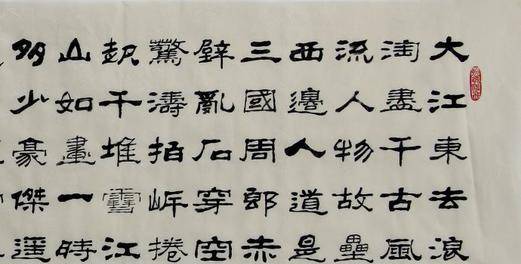 大江東去浪
淘盡千古風
流人物故壘
西邊人道是
三國周郎赤
壁亂石穿空
驚濤拍岸捲
起千堆雪江
山如畫一時
多少豪傑遥